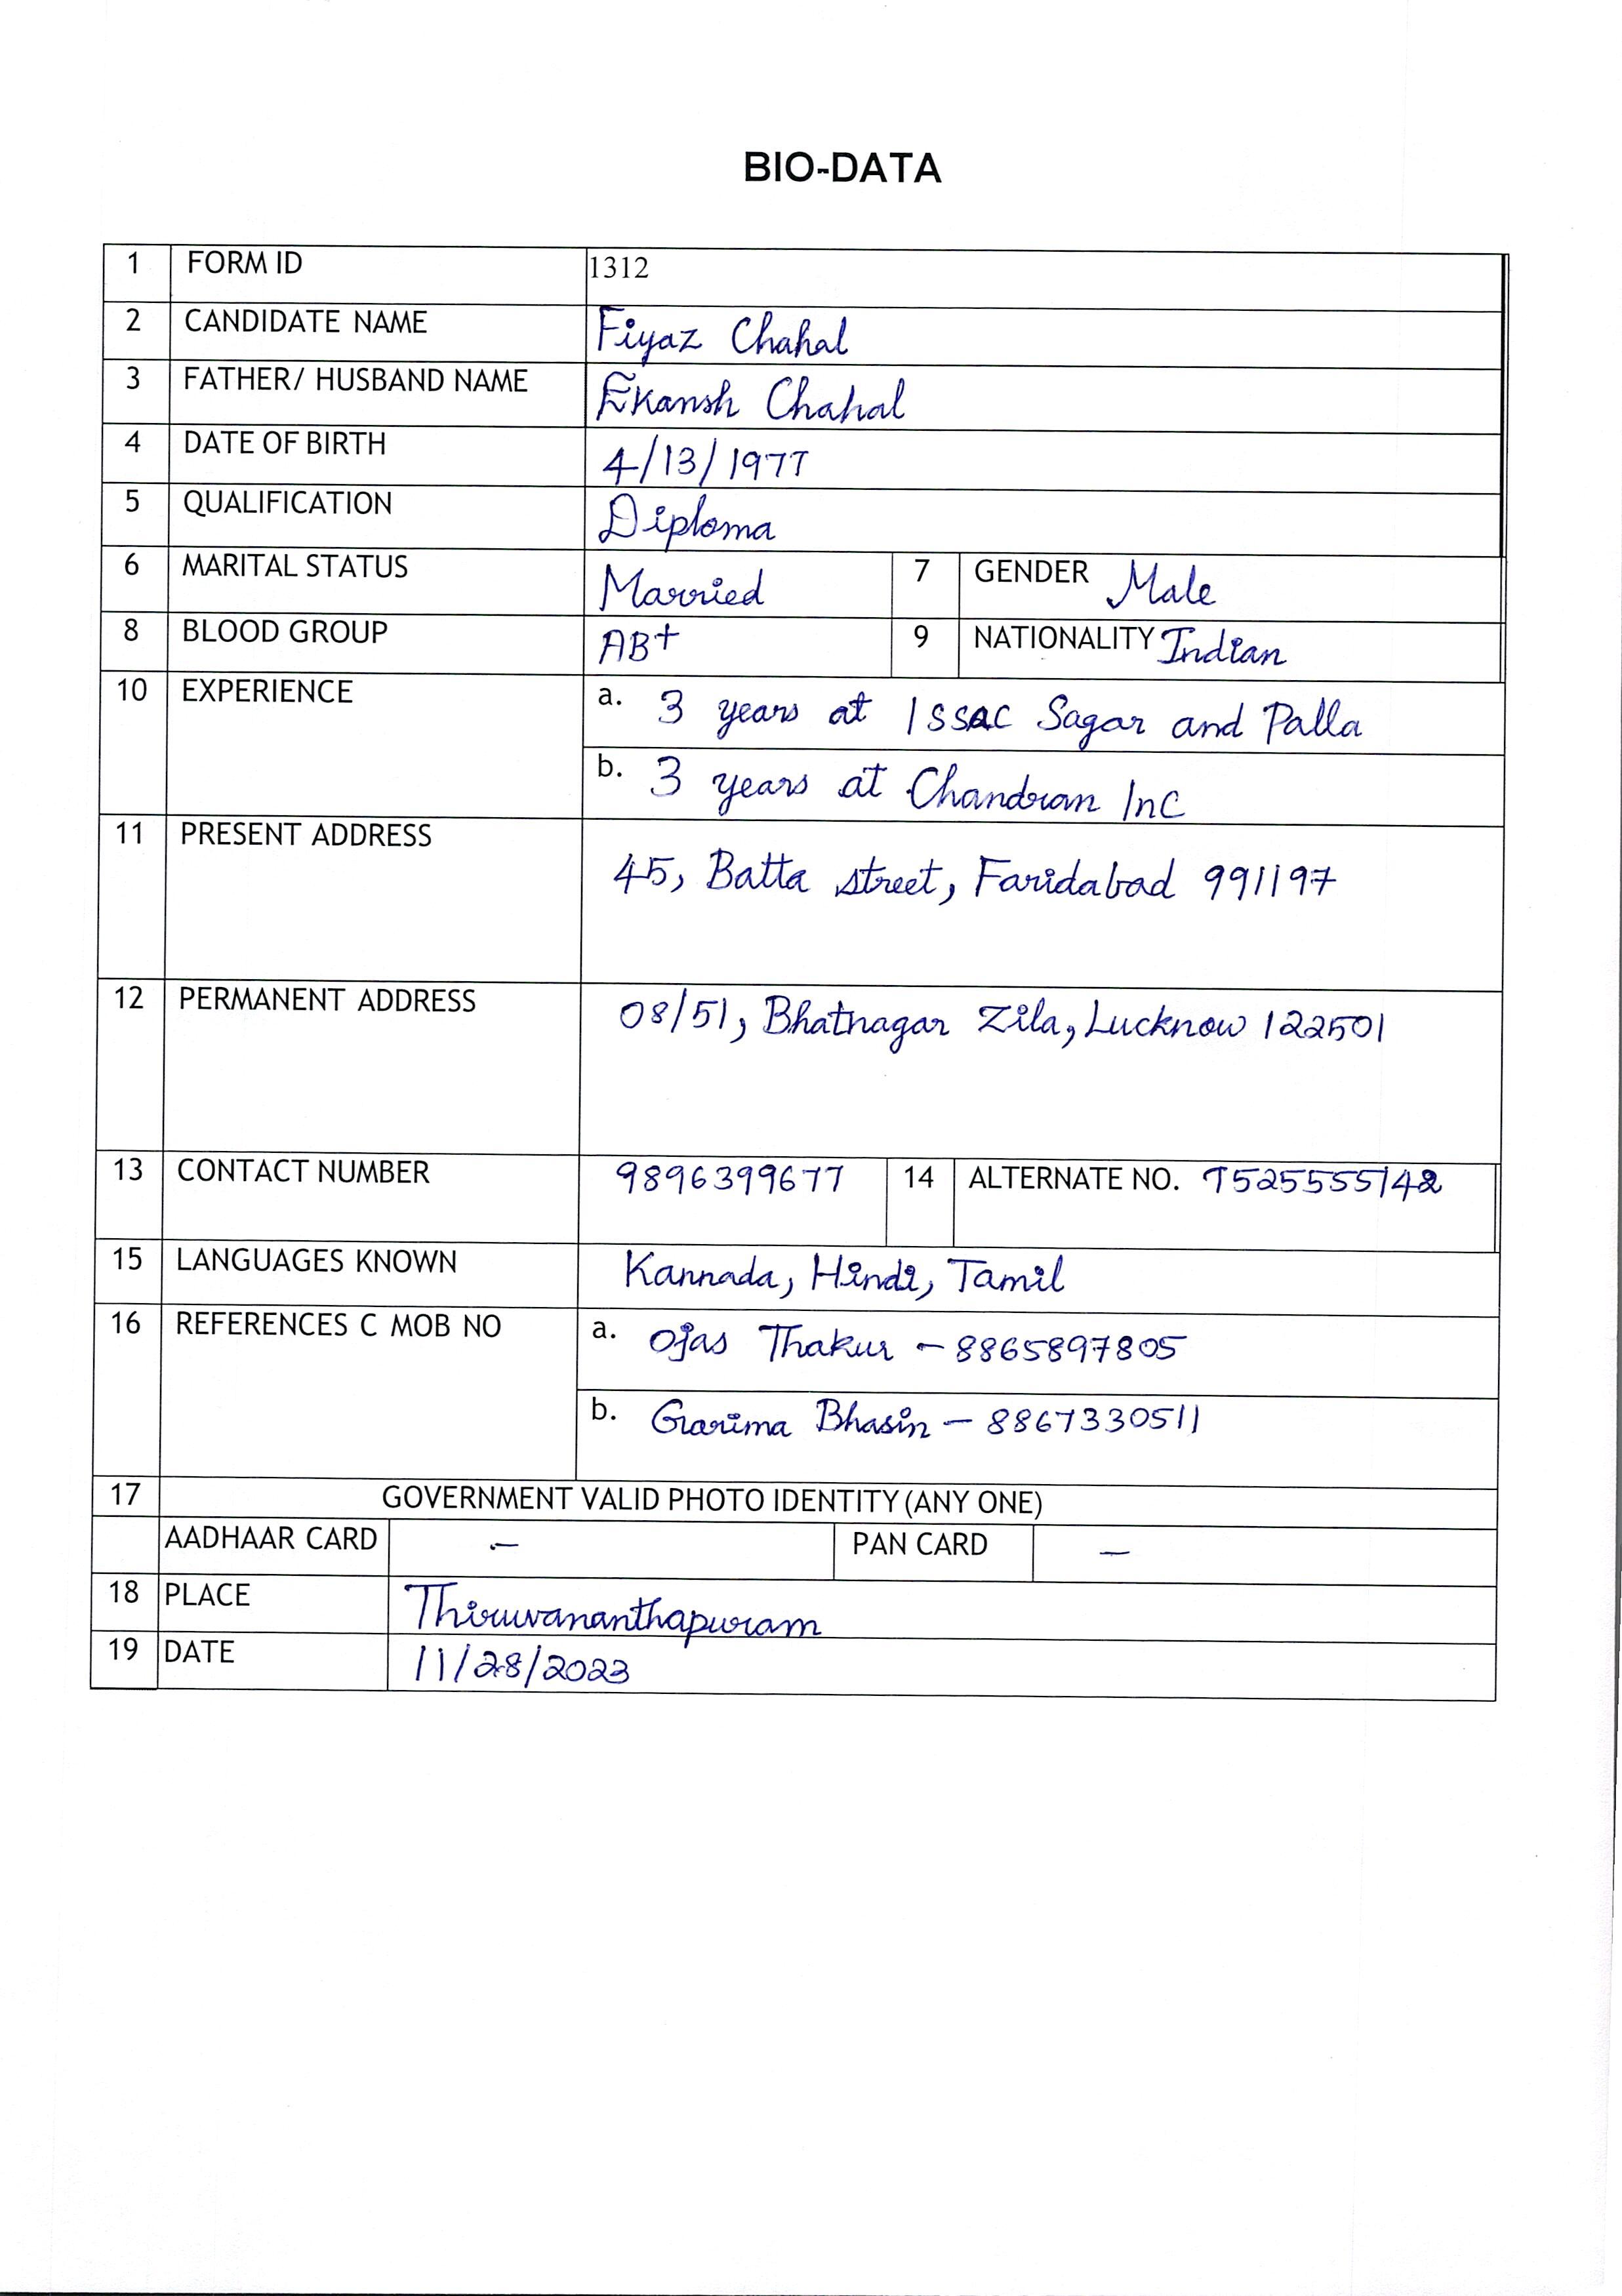 BIO-DATA
1 FORM ID 1312
2 CANDIDATE NAME Fiyaz Chahal
3 FATHER/ HUSBAND NAME Ekansh Chahal
4 DATE OF BIRTH 4/13/1977
5 QUALIFICATION Diploma
6 MARITAL STATUS Married 7 GENDER Male
8 BLOOD GROUP AB+ 9 NATIONALITY Indian
10 EXPERIENCE a. 3 years at Issac Sagar and Palla
b. 3 years at Chandran Inc
11 PRESENT ADDRESS 45, Batta street, Faridabad 991197
12 PERMANENT ADDRESS 08/51, Bhatnagar Zila, Lucknow 122501
13 CONTACT NUMBER 9896399677 14 ALTERNATE NO. 7525555142
15 LANGUAGES KNOWN Kannada, Hindi, Tamil
16 REFERENCES C MOB NO a. Ojas Thakur - 8865897805
b. Garima Bhasin - 8867330511
17 GOVERNMENT VALID PHOTO IDENTITY (ANY ONE)
AADHAAR CARD - PAN CARD -
18 PLACE Thiruvananthapuram
19 DATE 11/28/2023